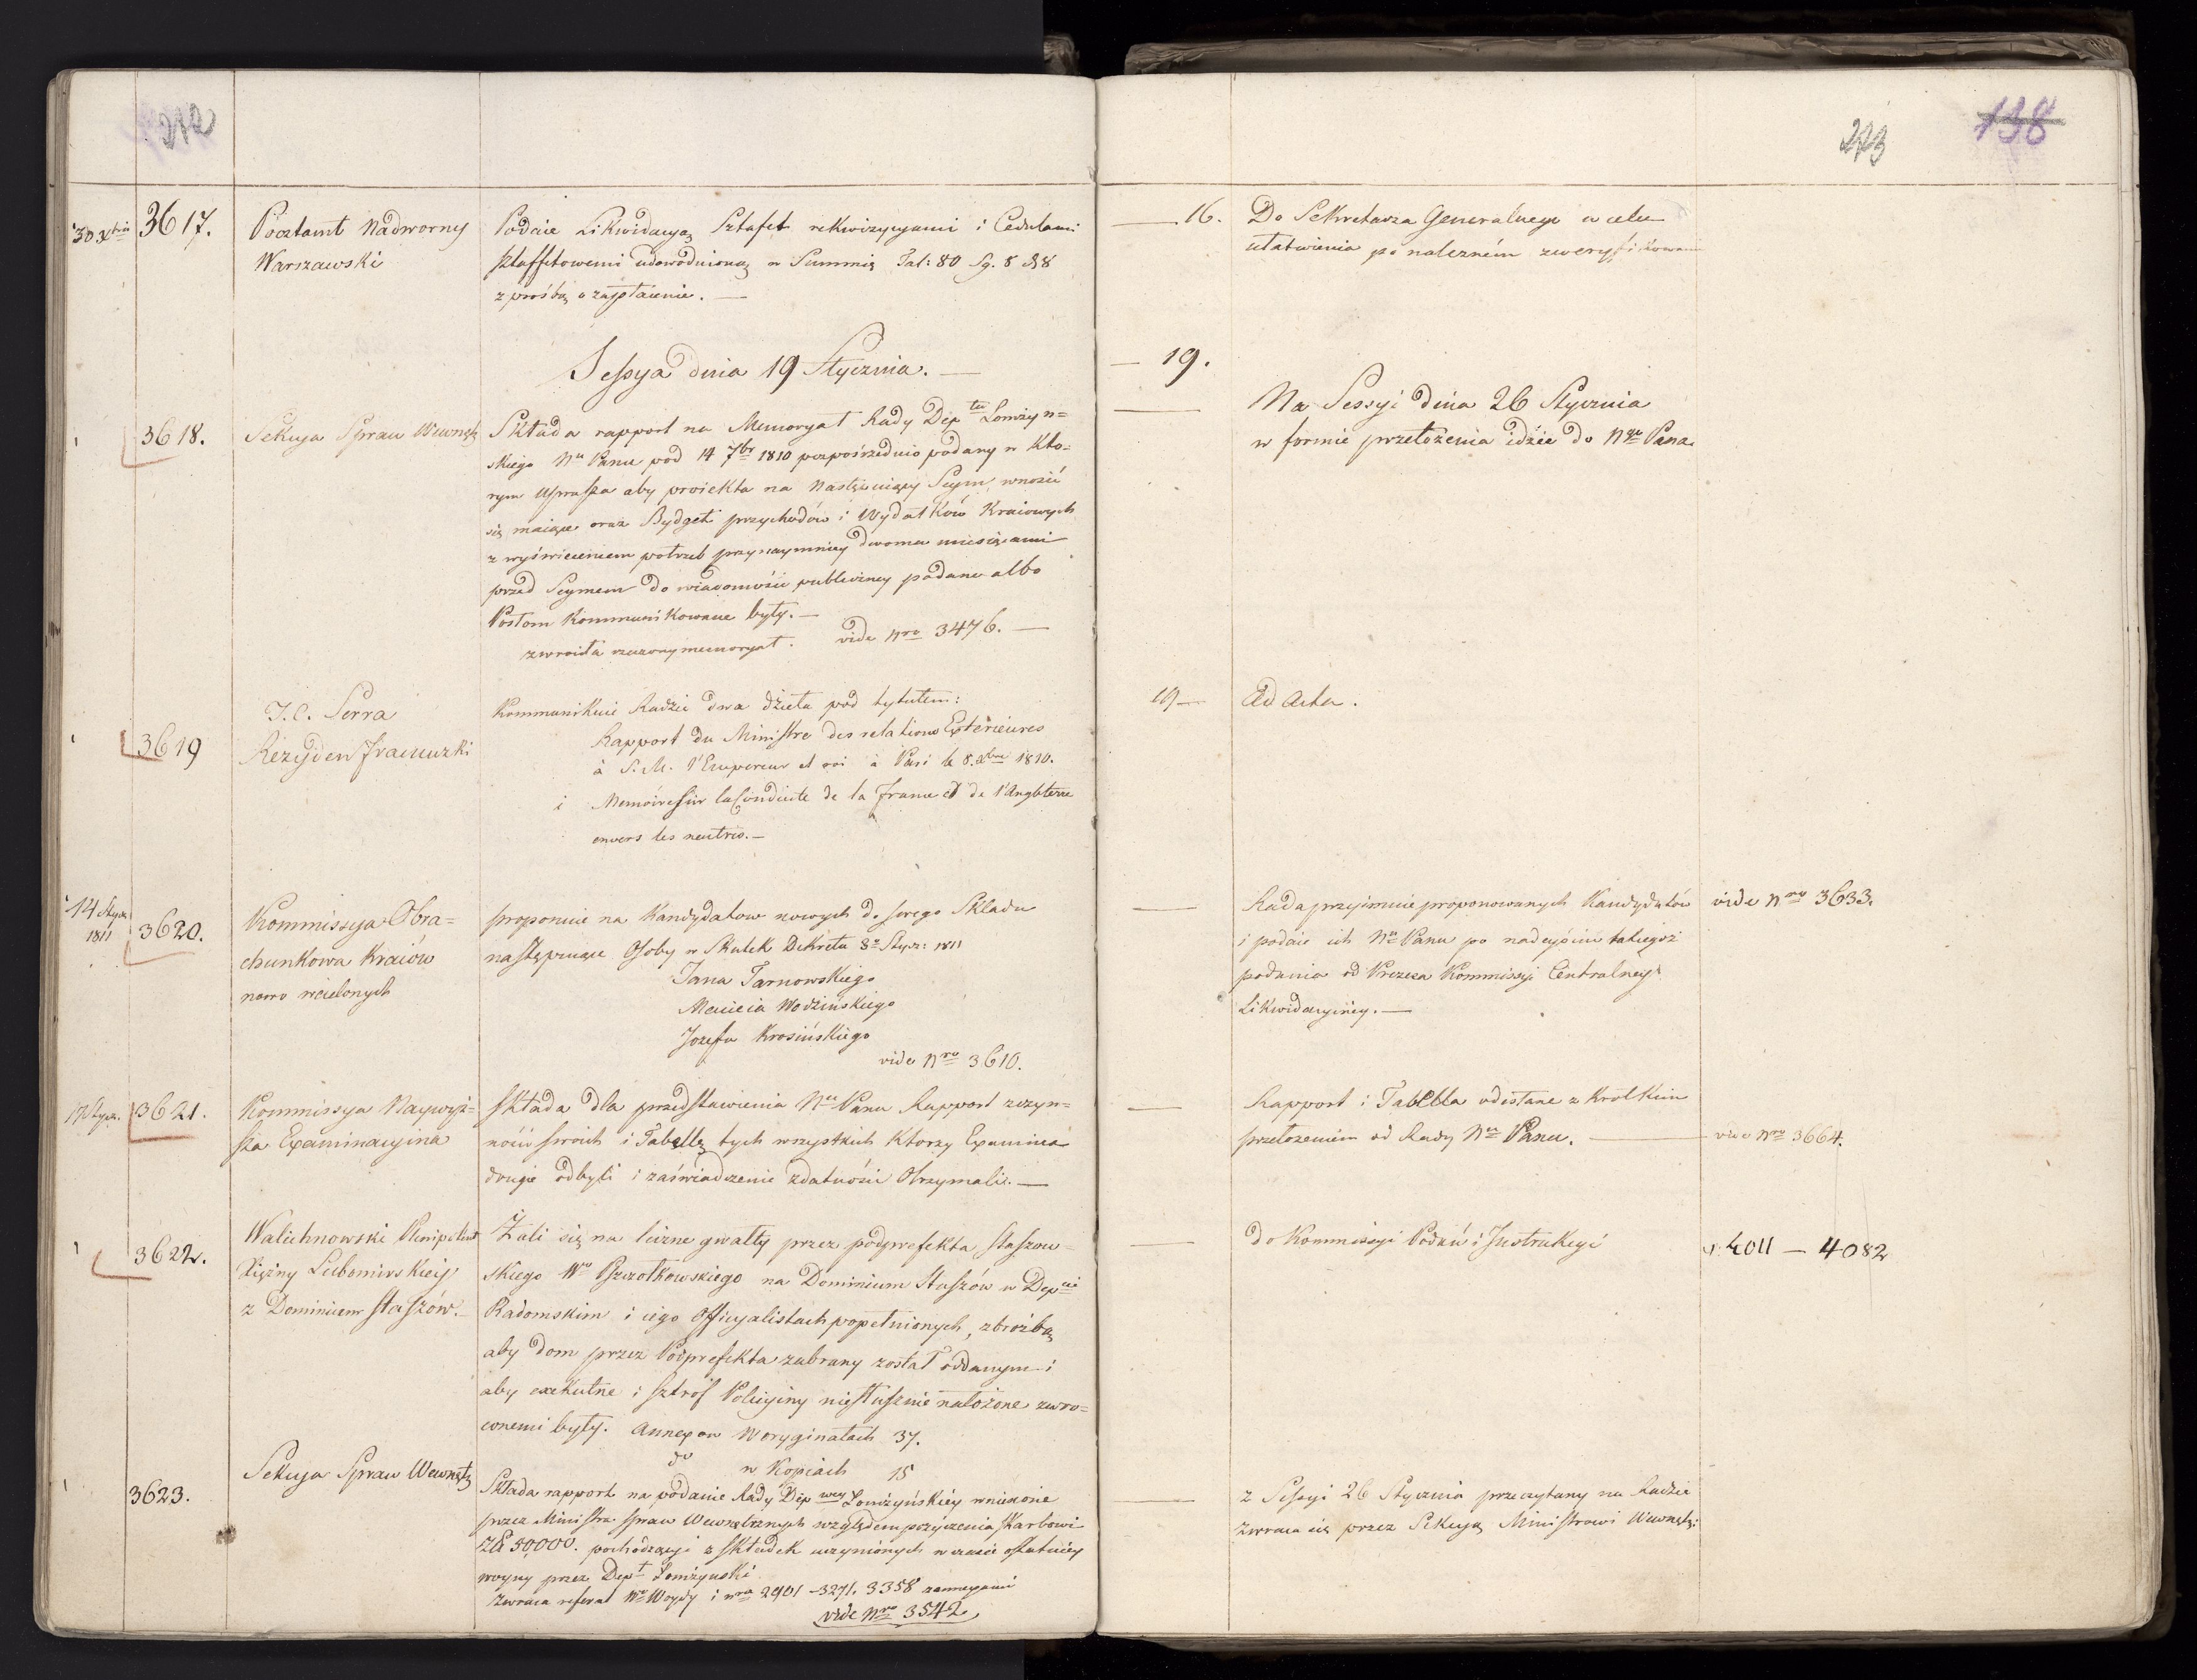 272
30. Xbris
3617.
Pocztamt Nadworny
Warszawski
Podaie Likwidacyą Sztafet rekwizycyami i Cedulami
sztaffetowemi udowodnioną w Summie Tal: 80 Sg. 8 & 8
z prośbą o zapłacenie. —
Sessya dnia 19 Stycznia. —
3618.
Sekcya Spraw Wewnętz
Składa rapport na Memoryał Rady Dep tu Łomżyn=
skiego Nu Panu pod 14 7br 1810 poszpośrzednio podany w Któ=
rym uprasza aby proiekta na Następuiący Seym wnosić
się maiące oraz Bydget przychodów i Wydatków Kraiowych
z wyświeceniem potrzeb przynaymniey dwoma miesiącami
przed Seymem do wiadomości publiczney podane albo
Posłom Kommunikowane były. —
zwraca rzeczony memoryał. vide Nro 3476. —
3619
J. C. Serra
Rezyden Francuzki
Kommunikuie Radzie dwa dzieła pod tytułem:
Rapport du Ministre des relations Extérieures
à S. M. l'Empereur et roi à Pari le 8. Xbre 1810.
i Memóire sur la Conduite de la France et de l'Angleterre
envers les neutres. —
14 Stycz
1811
3620.
Kommissya Obra=
chunkowa Kraiów
nowo wcielonych
proponuie na Kandydatow nowych do swego Składu
następuiące Osoby w Skutek Dekretu 8o Stycz: 1811
Jana Tarnowskiego
Macieia Wodzińskiego
Jozefa Krosińskiego
vide Nro 3610.
17 Stycz.
3621.
Kommissya Naywyż=
sza Examinacyina
Składa dla przedstawienia Nu Panu Rapport z czyn=
ności swoich i Tabellę tych wszystkich Ktorzy Examina
drugie odbyli i zaświadczenie zdatności Otrzymali. —
3622.
Walichnowski Plenipotent
Xiężny Lubomirskiey
z Dominium Staszów. —
Żali się na liczne gwałty przez podprefekta Staszow=
skiego Wo Pszczołkowskiego na Dominium Staszów w Dep cie
Radomskim i iego Officyalistach popełnionych, z prożbą
aby dom przez Podprefekta zabrany został oddanym i
aby exekutne i sztrof Policyiny niesłusznie nałożone zwro=
conemi były. Annexow w oryginałach 37.
do w Kopiach 15
3623.
Sekcya Spraw Wewnętz
Składa rapport na podanie Rady Dep wey Łomżyńskiey wniesione
przez Ministra spraw Wewnętrznych względem pożyczenia Skarbowi
Zł 50,000. pochodzący z Składek uczynionych w czasie ostatniey
woyny przez Dept Łomżynski
zwraca referat Wo Woydy i nra 2901 - 3271. 3358 z annexami
vide Nro 3542
273
138
— 16.
Do Sekretarza Generalnego w celu
ułatwienia po należném zweryfikowaniu
— 19.
Na Sessyi dnia 26 Stycznia
w formie przełożenia idzie do Ngo Pana
19 —
Ad Acta.
Rada przyimuie proponowanych Kandydatów
i podaie ich Nu Panu po nadeyściu takiegoż
podania od Prezesa Kommissyi Centralney
Likwidacyiney. —
vide Nro 3633.
Rapport i Tabella odesłane z Krotkim
przełożeniem od Rady Nu Panu. —
vide Nro 3664.
do Kommissyi Podań i Instrukcyi
v. 4011 — 4082
z Sessyi 26 Stycznia przeczytany na Radzie
zwraca się przez Sekcyą Ministrowi Wewnętz: